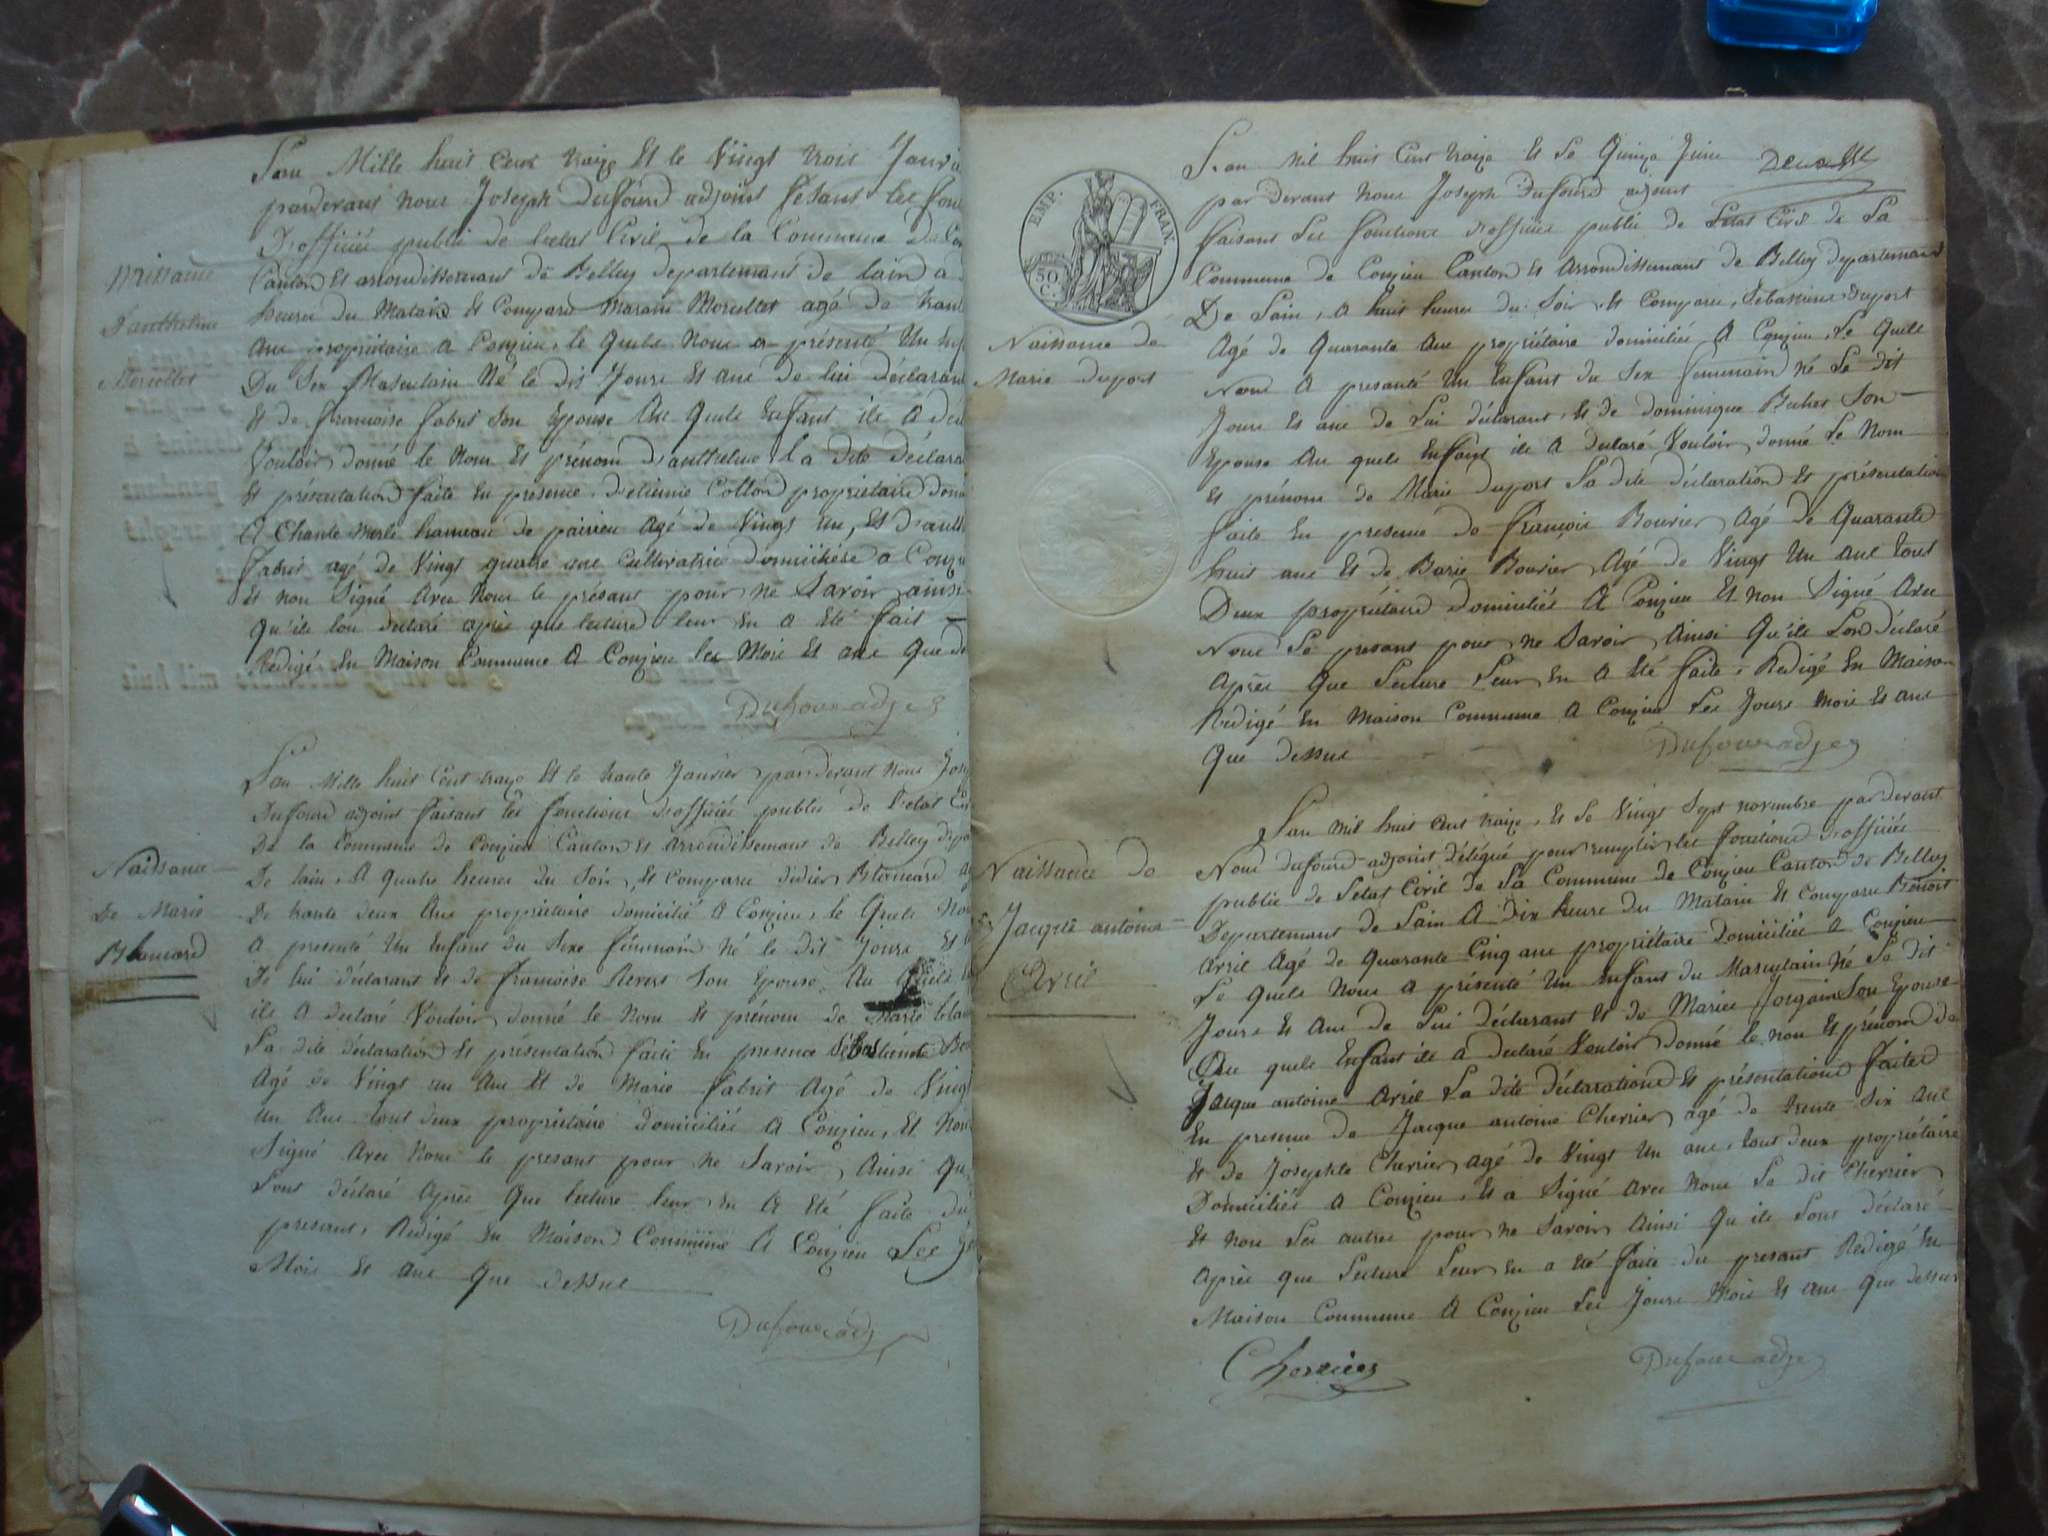 Naissance
D'anthelme
Merullet
L'an Mille huit Cent traize Et le Vingt trois Janvi
parderant nous Joseph Dufourd adjoint fesant les fon
D'officiée publi de l'etat Civil de la Commune de Con
Canton Et arrondissemant de Belley departemant de lain a
heures du Matain Et Comparu Marain Merullet agé de trant
ans propriétaire a Conzieu, le quele Nous a présenté Un enf
Du Sex Masculain Né le dit Jours Et ans de lui déclarant
Et de francoise fabrit Son Epouse Au quele Enfant ile a decl
Vouloir donné le Nom Et prénom d'anthelme la dite déclara
Et présentation faite En presence d'etienne Cotton propriétaire domi
A Chante merle hameau de pairieu Agé de Vingt un, Et d'anth
fabrit agé de Vingt quatre ans Cultivatrice domiciliée a Conzie
Et non Signé Avec Nous le présant pour ne Savoir ainsi
Qu'ile lon declaré après que lecture leur En a Eté fait
Redigé En Maison Commune A Conzieu les Mois Et ans Que de
Dufour adjoi
Naissance
De Marie
Blancard
L'an Mille huit Cent traize Et le trante Janvier parderant Nous Jose
Dufourd adjoint faisant les fonctions d'officiée publie de l'etat Civ
De la Commune de Conzieu Canton Et arrondissemant de Belley depa
De lain, A quatre heures du Soir, Et Comparu didier Blancard Ag
De trante deux Ans propriétaire domicilié A Conzieu, le Quele Nou
A presenté Un Enfant du Sexe féminain Né le dit Jours Et
De lui déclarant Et de françoise Son Epouse. Au quele
ile A declaré Vouloir donné le Nom Et prénom de Marie blan
La dite déclaration Et présentation faite En presence Sébastiend
Agé de Vingt un Ans Et de Marie fabrit Agé de Vingt
Un Ans tout deux propriétaire domiciliés A Conzieu, Et Non
Signé Avec Nous le presant pour ne Savoir Ainsi Qu
Lont déclaré Après Que lecture leur En A Eté faite du
presant, Redigé En Maison Commune A Conzieu Les J
Mois Et ans Que dessus
Dufour adj
EMP. FRAN.
50 C.
Naissance de
Marie duport
L'an Mil huit Cent traize Et Le Quinze Juin
par devant Nous Joseph Dufourd adjoint
faisant Les fonctions d'officiée publie de Letat Civil de La
Commune de Conzieu Canton Et Arrondissemant de Belley departemant
De Lain, A huit heures du Soir, Et Comparu, Sébastien duport
Agé de Quarante Ans propriétaire domicilié A Conzieu, Le Quele
Nous A presanté Un Enfant du Sex femmain né Le dit
Jours Et ans de Lui déclarant, Et de dominique Son
Epouse Au quele Enfant ile A declaré Vouloir donné Le Nom
Et prénom de Marie duport La dite déclaration Et présentation
faite En presense de françois Bouvier Agé de Quarante
huit ans Et de Bouvier, Agé de Vingt Un ans tout
Deux propriétaire domiciliés A Conzieu Et non Signé Avec
Nous Le presant pour ne Savoir Ainsi Qu'ile Lon déclaré
Après Que Lecture Leur En A Eté faite, Redigé En Maison
Redigé En Maison Commune A Conzieu Les Jours Mois Et ans
Que Dessus
Dufour adjoi
Naissance de
Jacque antoine
Avril
L'an mil huit Cent traize, Et Le Vingt Sept novembre par devant
Nous dufourd adjoint délégué pour remplir les fonctions d'officiée
publie de Letat Civil de La Commune de Conzieu Canton de Belley
Departemant de Lain A Dix heure du Matain Et Comparu Benoit
Avril Agé de Quarante Cinq ans propriétaire domicilié a Conzieu
Le Quele Nous a présenté Un Enfant du Masculain né Le dit
Jours Et Ans de Lui déclarant Et de Marie Son Epouse
Au quele Enfant ile a déclaré Vouloir donné le nom Et prénom de
Jacque antoine Avril La dite déclaration Et présentation faites
En presense de Jacque antoine Cherrier, agé de trente Six ans
Et de Josephte Cherier agé de Vingt Un ans, tout deux propriétaire
Domiciliés a Conzieu, Et a Signé avec Nous Le dit Cherrier
Et non Les autres pour ne Savoir Ainsi Qu'ile Lont déclaré
Après que Lecture Leur En a Eté faite du presant Redigé En
Maison Commune A Conzieu Les Jours Mois Et ans Que dessus
Cherrier
Dufour adjoi